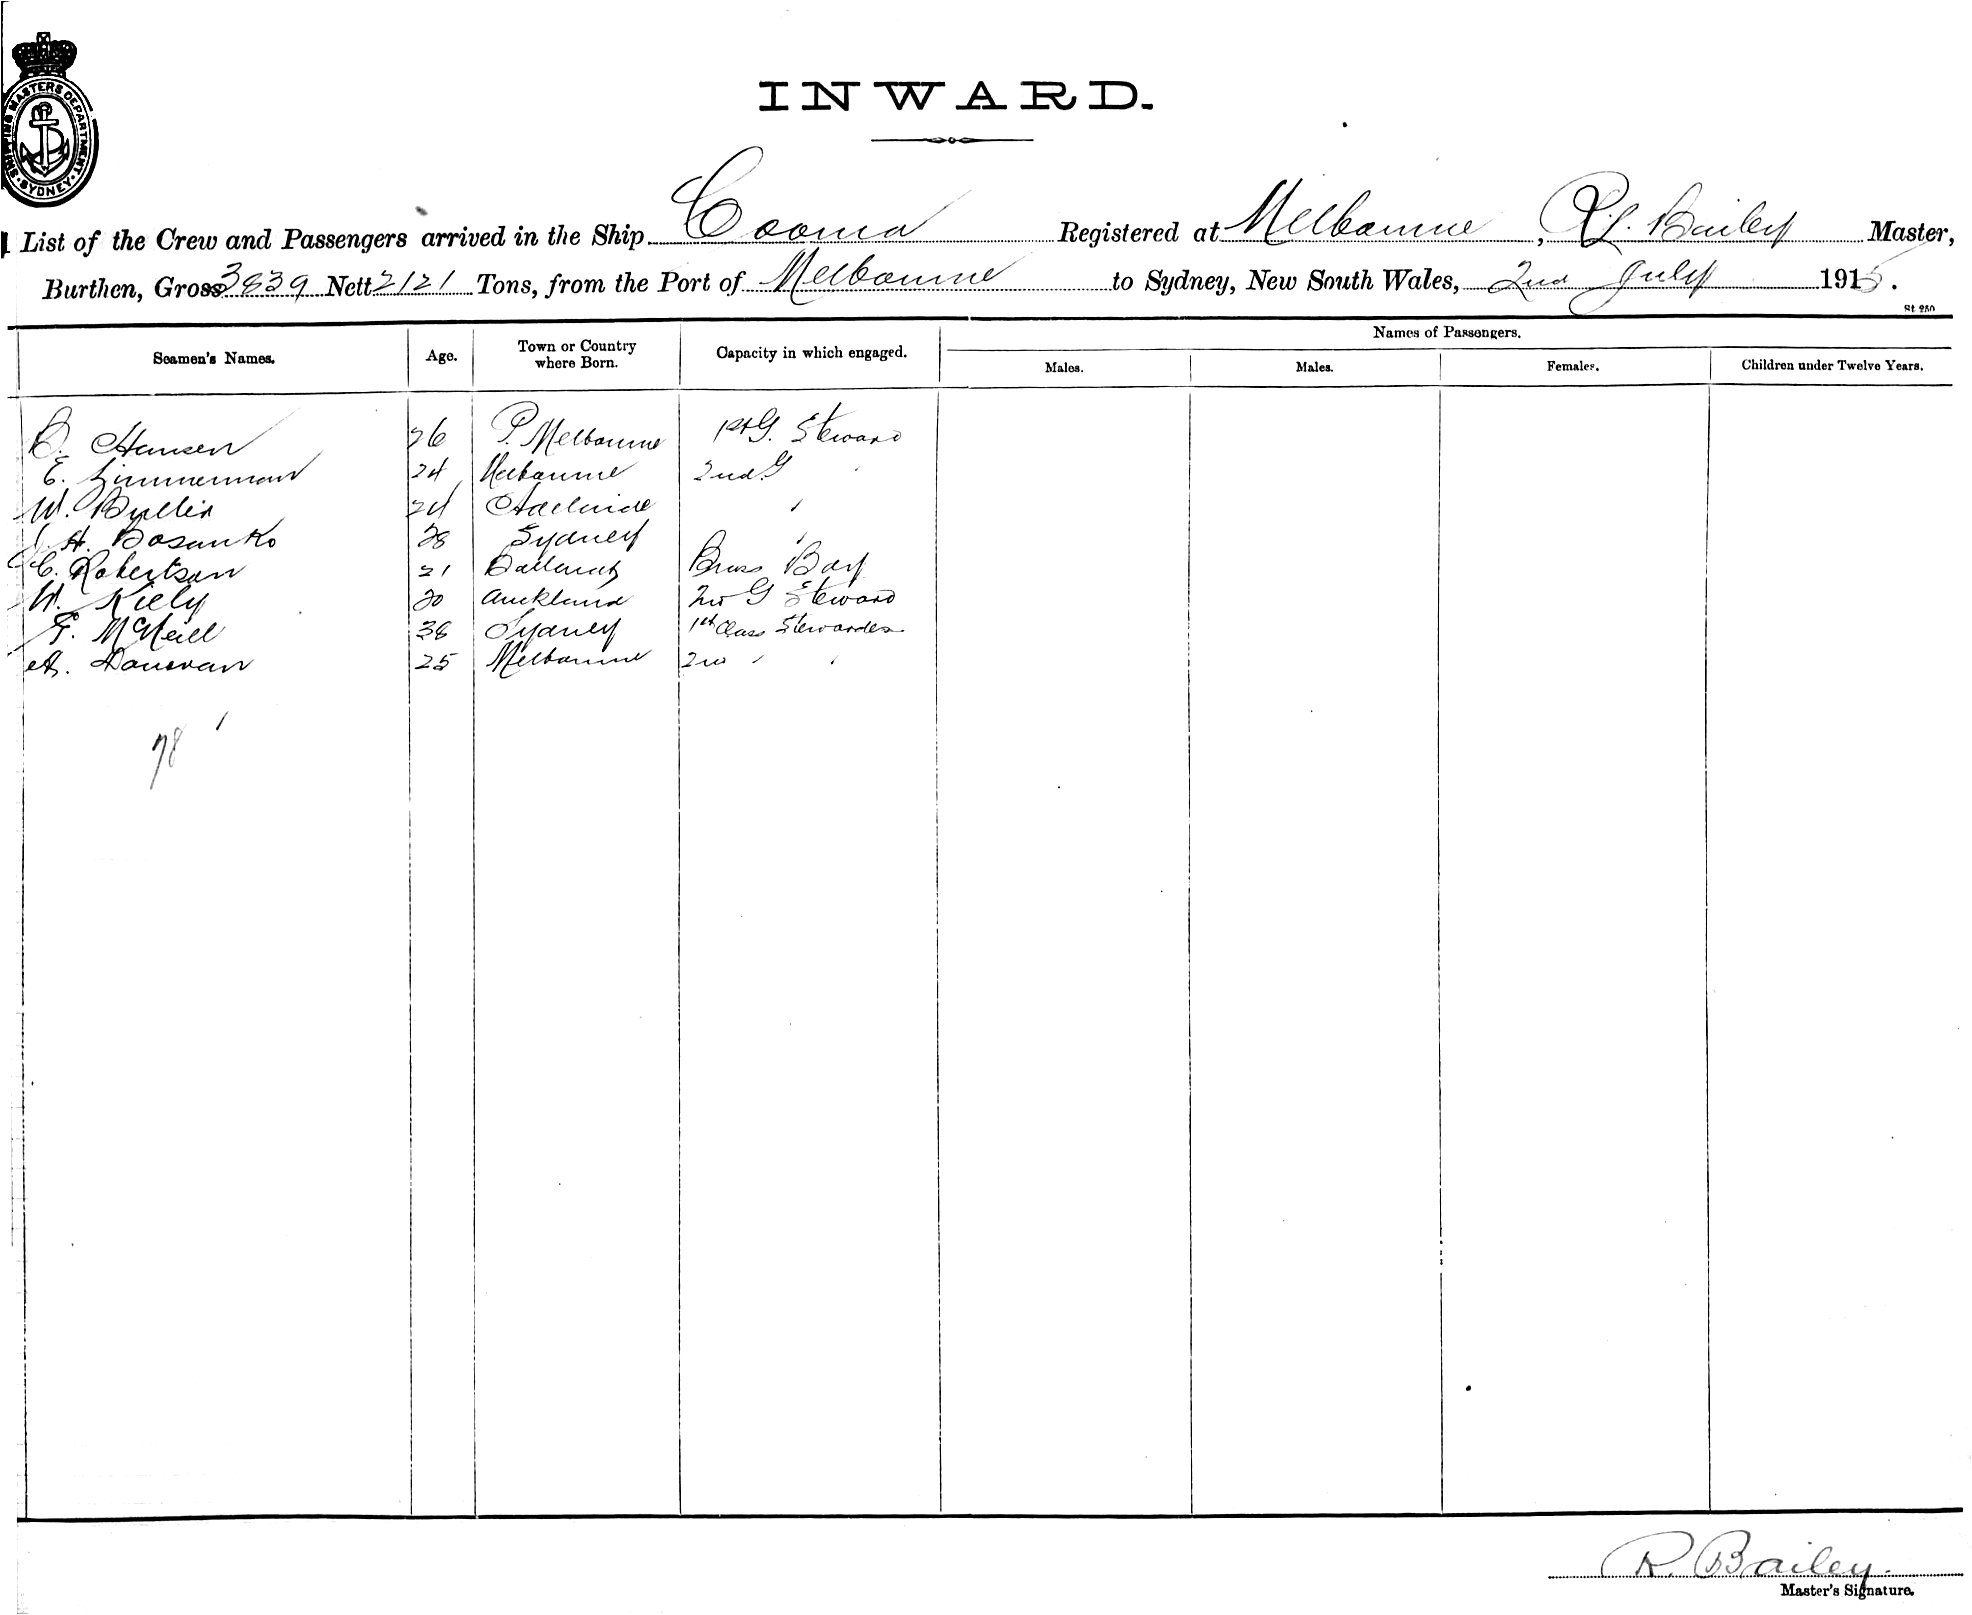 SHIPPING MASTERS DEPARTMENT · SYDNEY ·
INWARD.
List of the Crew and Passengers arrived in the Ship Cooma Registered at Melbourne, Bailey Master,
Burthen, Gross 3839 Nett 2121 Tons, from the Port of Melbourne to Sydney, New South Wales, 2nd July 1915.
St 250
Seamen's Names. Age. Town or Country where Born. Capacity in which engaged. Names of Passengers.
Males. Males. Females. Children under Twelve Years.
Hansen 26 P. Melbourne 1st G. Steward
E. Zimmerman 24 Melbourne 2nd G
W. 24 Adelaide
A. Bosanko 28 Sydney
C. Robertson 21 Ballarat Brass Boy
W. Kiely 20 Auckland 2nd G Steward
F. McNeill 38 Sydney 1st Class Stewardess
A. Donovan 25 Melbourne 2nd
78
R. Bailey.
Master's Signature.